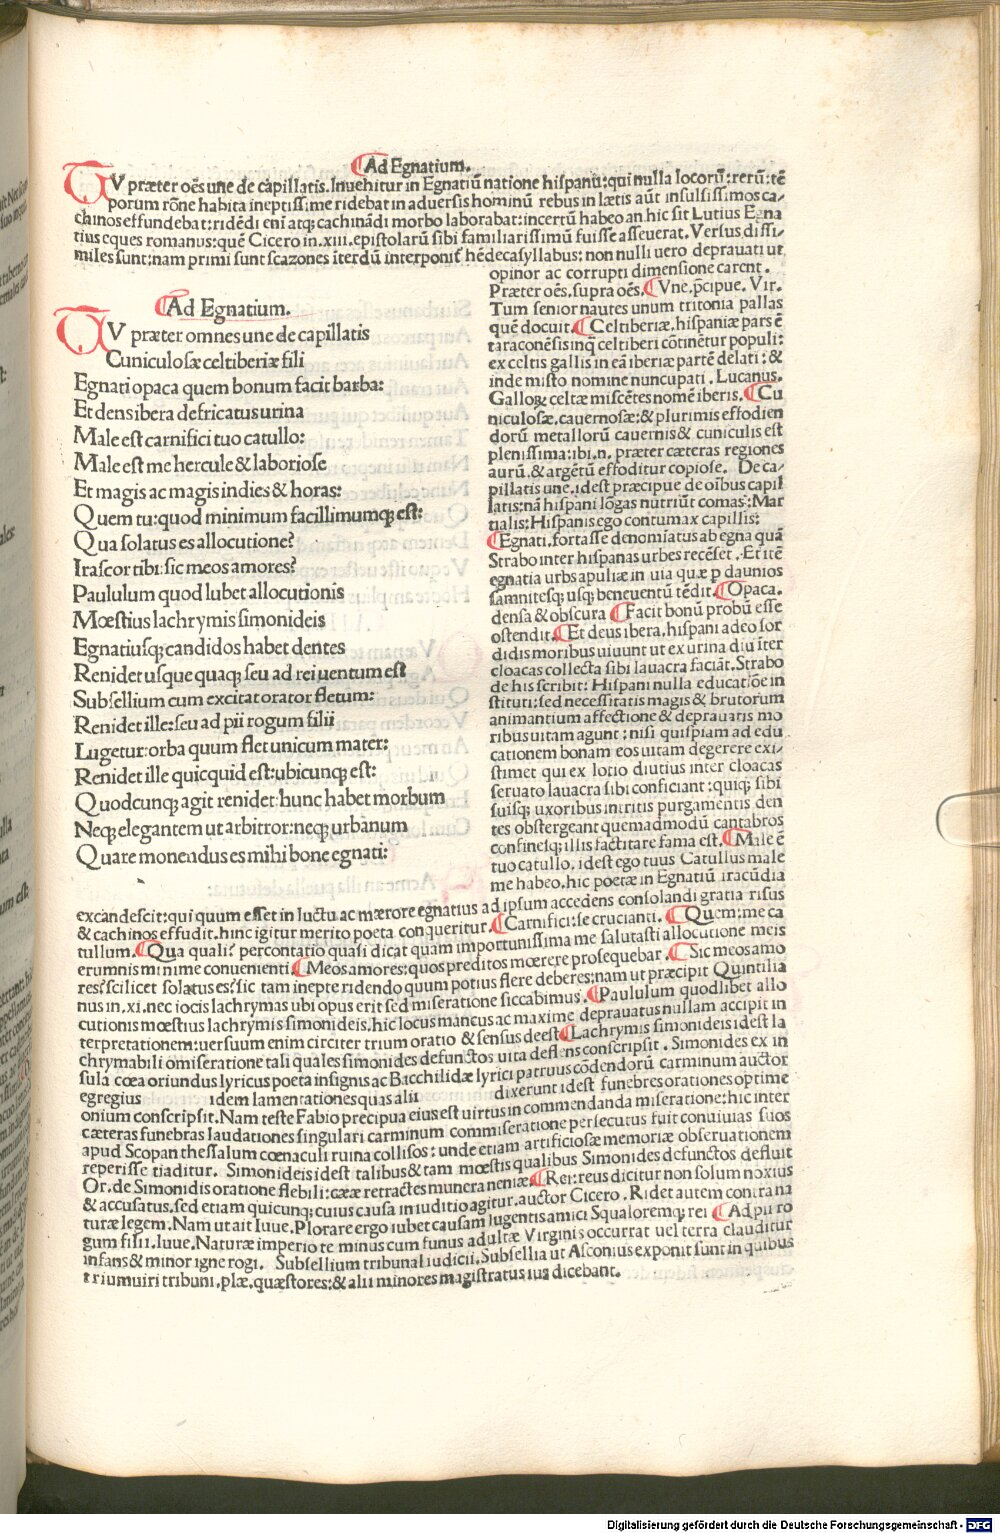 ¶Ad Egnatium.
TV præter oēs une de capillatis. Inuehitur in Egnatiū natione hispanū: qui nulla locorū: rerū: tē
porum rōne habita ineptissime ridebat in aduersis hominū rebus in lætis aūt insulsissimos ca/
chinos effundebat: ridēdi eni atq; cachināndi morbo laborabat: incertū habeo an hic sit Lutius Egna
tius eques romanus: quē Cicero in .xiii. epistolarū sibi familiarissimū fuisse asseuerat. Versus dissi/
miles sunt: nam primi sunt scazones iterdū interponit hēdecasyllabus: non nulli uero deprauati ut
opinor ac corrupti dimensione carent.
Præter oēs, supra oēs. ¶Vne, p̄cipue. Vir.
Tum senior nautes unum tritonia pallas
quē docuit. ¶Celtiberiæ, hispaniæ pars ē
taraconēsis inq̄ celtiberi cōtinētur populi:
ex celtis gallis in eā iberiæ partē delati: &
inde misto nomine nuncupati. Lucanus.
Galloꝝ celtæ miscētes nomē iberis. ¶Cu
niculosæ, cauernosæ: & plurimis effodien
dorū metallorū cauernis & cuniculis est
plenissima: ibi.n. præter cæteras regiones
aurū & argētū effoditur copiose. De ca/
pillatis une, idest præcipue de oībus capil
latis: nā hispani lōgas nutriūt comas: Mar
tialis: Hispanis ego contumax capillis:
¶Egnati, fortasse denomīatus ab egna quā
Strabo inter hispanas urbes recēset. Et itē
egnatia urbs apuliæ in uia quæ p daunios
samnitesq; usq; beneuentū tēdit. ¶Opaca.
densa & obscura ¶Facit bonū probū esse
ostendit. ¶Et deus ibera, hispani adeo sor
didis moribus uiuunt ut ex urina diu īter
cloacas collecta sibi lauacra faciāt. Strabo
de his scribit: Hispani nulla educatiōe in
stituti: sed necessitatis magis & brutorum
animantium affectione & deprauatis mo
ribus uitam agunt: nisi quispiam ad edu
cationem bonam eos uitam degerere exi/
stimet qui ex lotio diutius inter cloacas
seruato lauacra sibi conficiant: quiq; sibi
suisq; uxoribus in tritis purgamentis den
tes obstergeant quemadmodū cantabros
confinesq; illis factitare fama est. ¶Male ē
tuo catullo, idest ego tuus Catullus male
me habeo, hic poeta in Egnatiū iracūdia
¶Ad Egnatium.
TV præter omnes une de capillatis
Cuniculosæ celtiberiæ fili
Egnati opaca quem bonum facit barba:
Et dens ibera defricatus urina
Male est carnifici tuo catullo:
Male est me hercule & laboriose
Et magis ac magis indies & horas:
Quem tu: quod minimum facillimumq; est:
Qua solatus es allocutione?
Irascor tibi: sic meos amores?
Paululum quod lubet allocutionis
Mœstius lachrymis simonideis
Egnatiusq; candidos habet dentes
Renidet usque quaq; seu ad rei uentum est
Subsellium cum excitat orator fletum:
Renidet ille: seu ad pii rogum filii
Lugetur: orba quum flet unicum mater:
Renidet ille quicquid est: ubicunq; est:
Quodcunq; agit renidet: hunc habet morbum
Neq; elegantem ut arbitror: neq; urbanum
Quare monendus es mihi bone egnati:
excandescit: qui quum esset in luctu ac mærore egnatius ad ipsum accedens consolandi gratia risus
& cachinos effudit. hinc igitur merito poeta conqueritur. ¶Carnifici: se crucianti. ¶Quem: me ca
tullum. ¶Qua quali? percontatio quasi dicat quam importunissima me salutasti allocutione meis
erumnis minime conuenienti. ¶Meos amores: quos preditos mœrere prosequebar. ¶Sic meos amo
res? scilicet solatus es? sic tam inepte ridendo quum potius flere deberes: nam ut præcipit Quintilia
nus in .xi. nec iocis lachrymas ubi opus erit sed miseratione siccabimus. ¶Paululum quodlibet allo
cutionis mœstius lachrymis simonideis. hic locus mancus ac maxime deprauatus nullam accipit in
terpretationem: uersuum enim circiter trium oratio & sensus deest ¶Lachrymis simonideis idest la
chrymabili omiseratione tali quales simonides defunctos uita deflens conscripsit. Simonides ex in
sula cœa oriundus lyricus poeta insignis ac Bacchilidæ lyrici patruus cōdendorū carminum auctor
egregius idem lamentationes quas alii dixerunt idest funebres orationes optime
onium conscripsit. Nam teste Fabio precipua eius est uirtus in commendanda miseratione: hic inter
cæteras funebras laudationes singulari carminum commiseratione persecutus fuit conuiuas suos
apud Scopan thessalum cœnaculi ruina collisos: unde etiam artificiosæ memoriæ obseruationem
reperisse traditur. Simonideis idest talibus & tam mœstis qualibus Simonides defunctos defluit
Or. de Simonidis oratione flebili: cææ retractes munera neniæ. ¶Rei: reus dicitur non solum noxius
& accusatus, sed etiam quicunq; cuius causa in iuditio agitur. auctor Cicero. Ridet autem contra na
turæ legem. Nam ut ait Iuue. Plorare ergo iubet causam lugentis amici Squaloremq; rei ¶Ad pii ro
gum filii. Iuue. Naturæ imperio te minus cum funus adultæ Virginis occurrat uel terra clauditur
infans & minor igne rogi. Subsellium tribunal iudicii. Subsellia ut Asconius exponit sunt in quibus
triumuiri tribuni, plæ, quæstores: & alii minores magistratus ius dicebant.
Digitalisierung gefördert durch die Deutsche Forschungsgemeinschaft - DFG